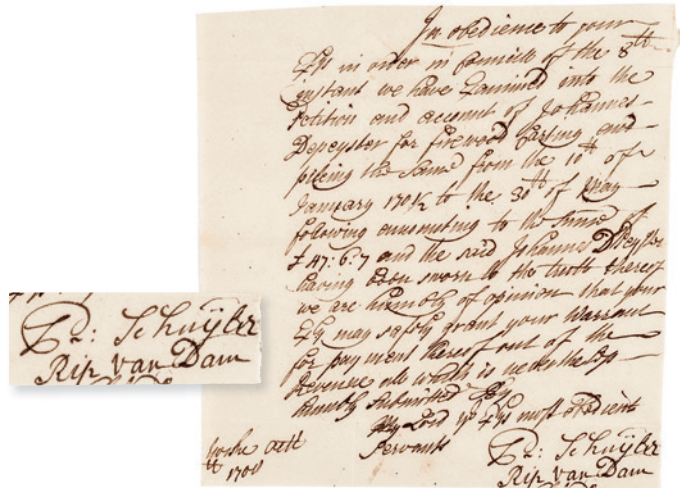 In obedience to your
Exys in order in Councill of the 8th
instant we have Examined into the
Petition and account of Johannes
Depeyster for firewood Carting and
pileing the Same from the 10th of
January 170½ to the 30th of May
following amounting to the Summe of
£47:6:7 and the said Johannes DPeyster
having been sworn to the truth thereof
we are humbly of opinion that your
Exy may safely grant your Warrant
for payment thereof out of the
Revenue all which is nevertheless
humbly Submitted By
My Lord yr Exys most obedient
Servants
Pr: Schuÿler
Rip van Dam
8th
1708
Pr: Schuÿler
Rip van Dam